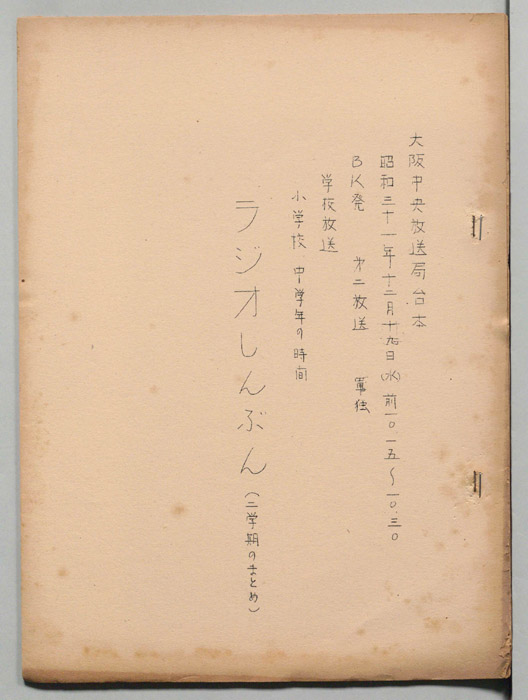 大阪中央放送局台本
昭和三十一年十二月十九日(水)前一〇.一五〜一〇.三〇
BK発 第二放送 単独
学校放送
小学校 中学年の時間
ラジオしんぶん(二学期のまとめ)